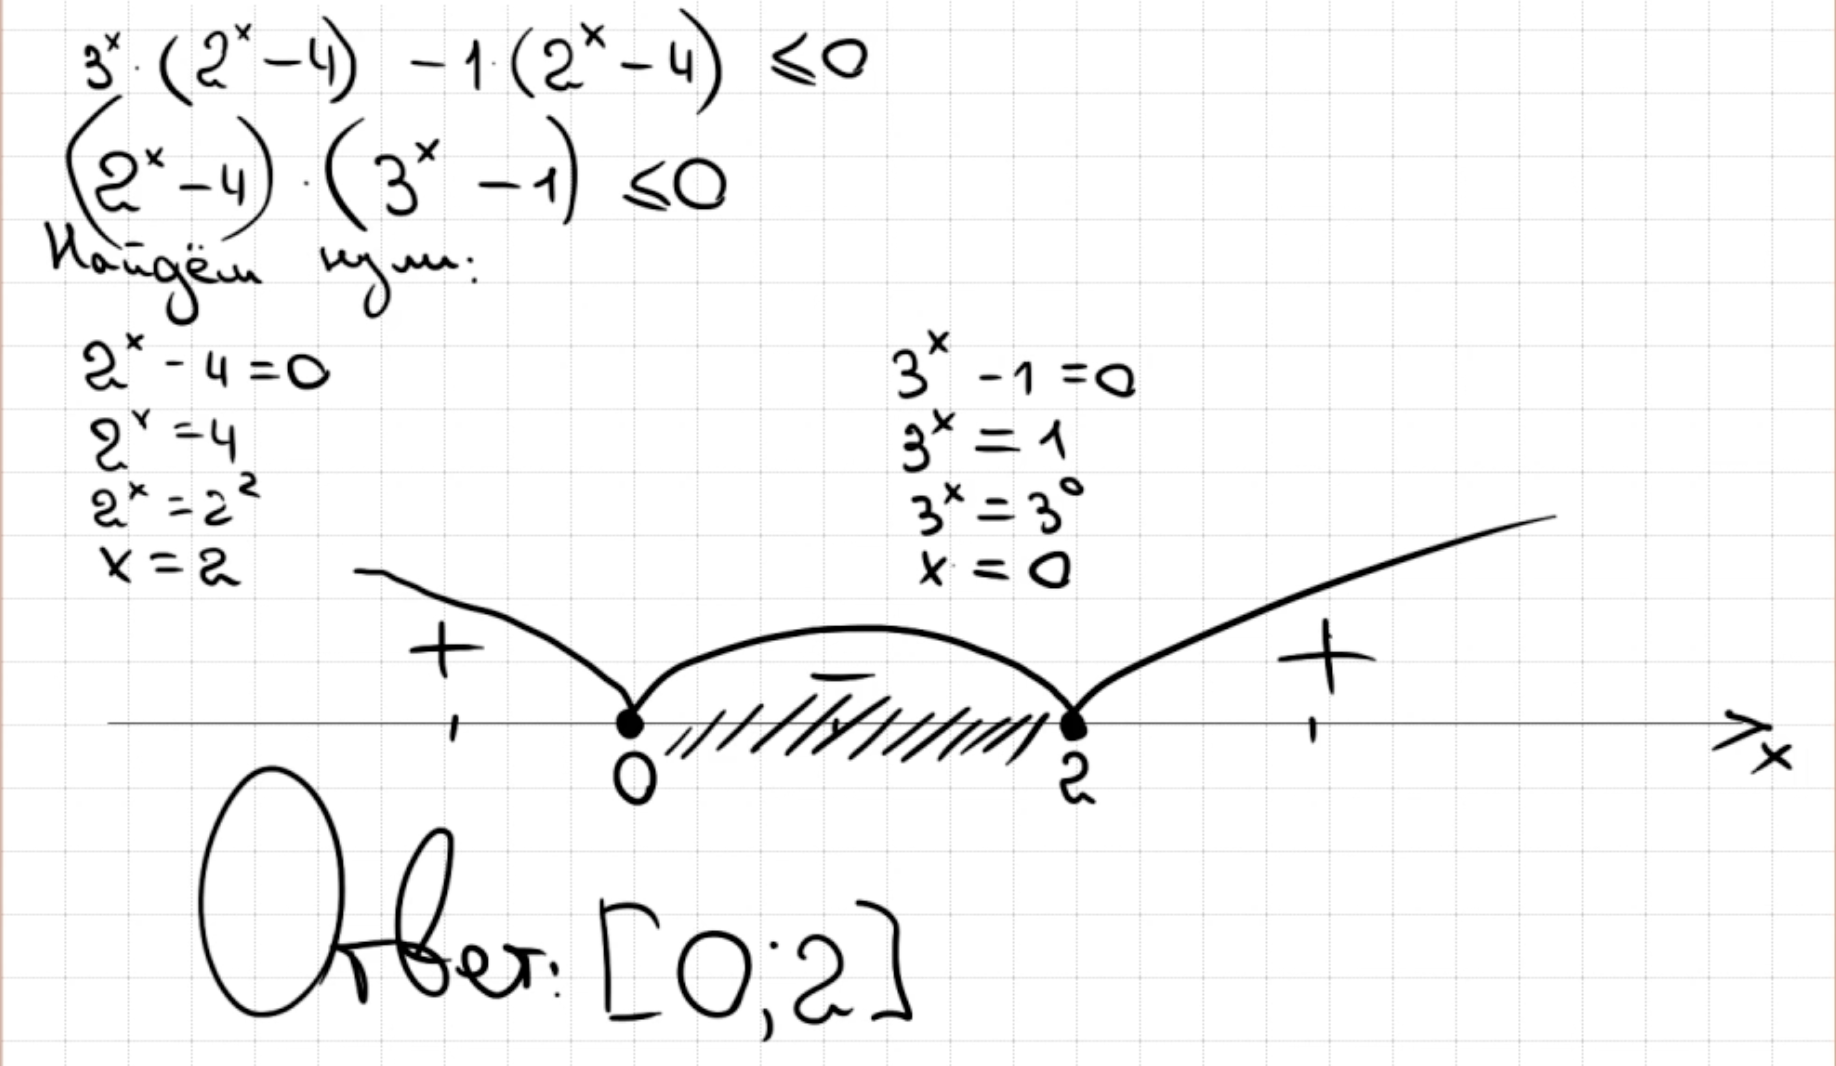 3ˣ · (2ˣ − 4) − 1 · (2ˣ − 4) ≤ 0
(2ˣ − 4) · (3ˣ − 1) ≤ 0
Найдём нули:
2ˣ − 4 = 0
2ˣ = 4
2ˣ = 2²
x = 2
3ˣ − 1 = 0
3ˣ = 1
3ˣ = 3⁰
x = 0
+ − +
0 2 x
Ответ: [0; 2]